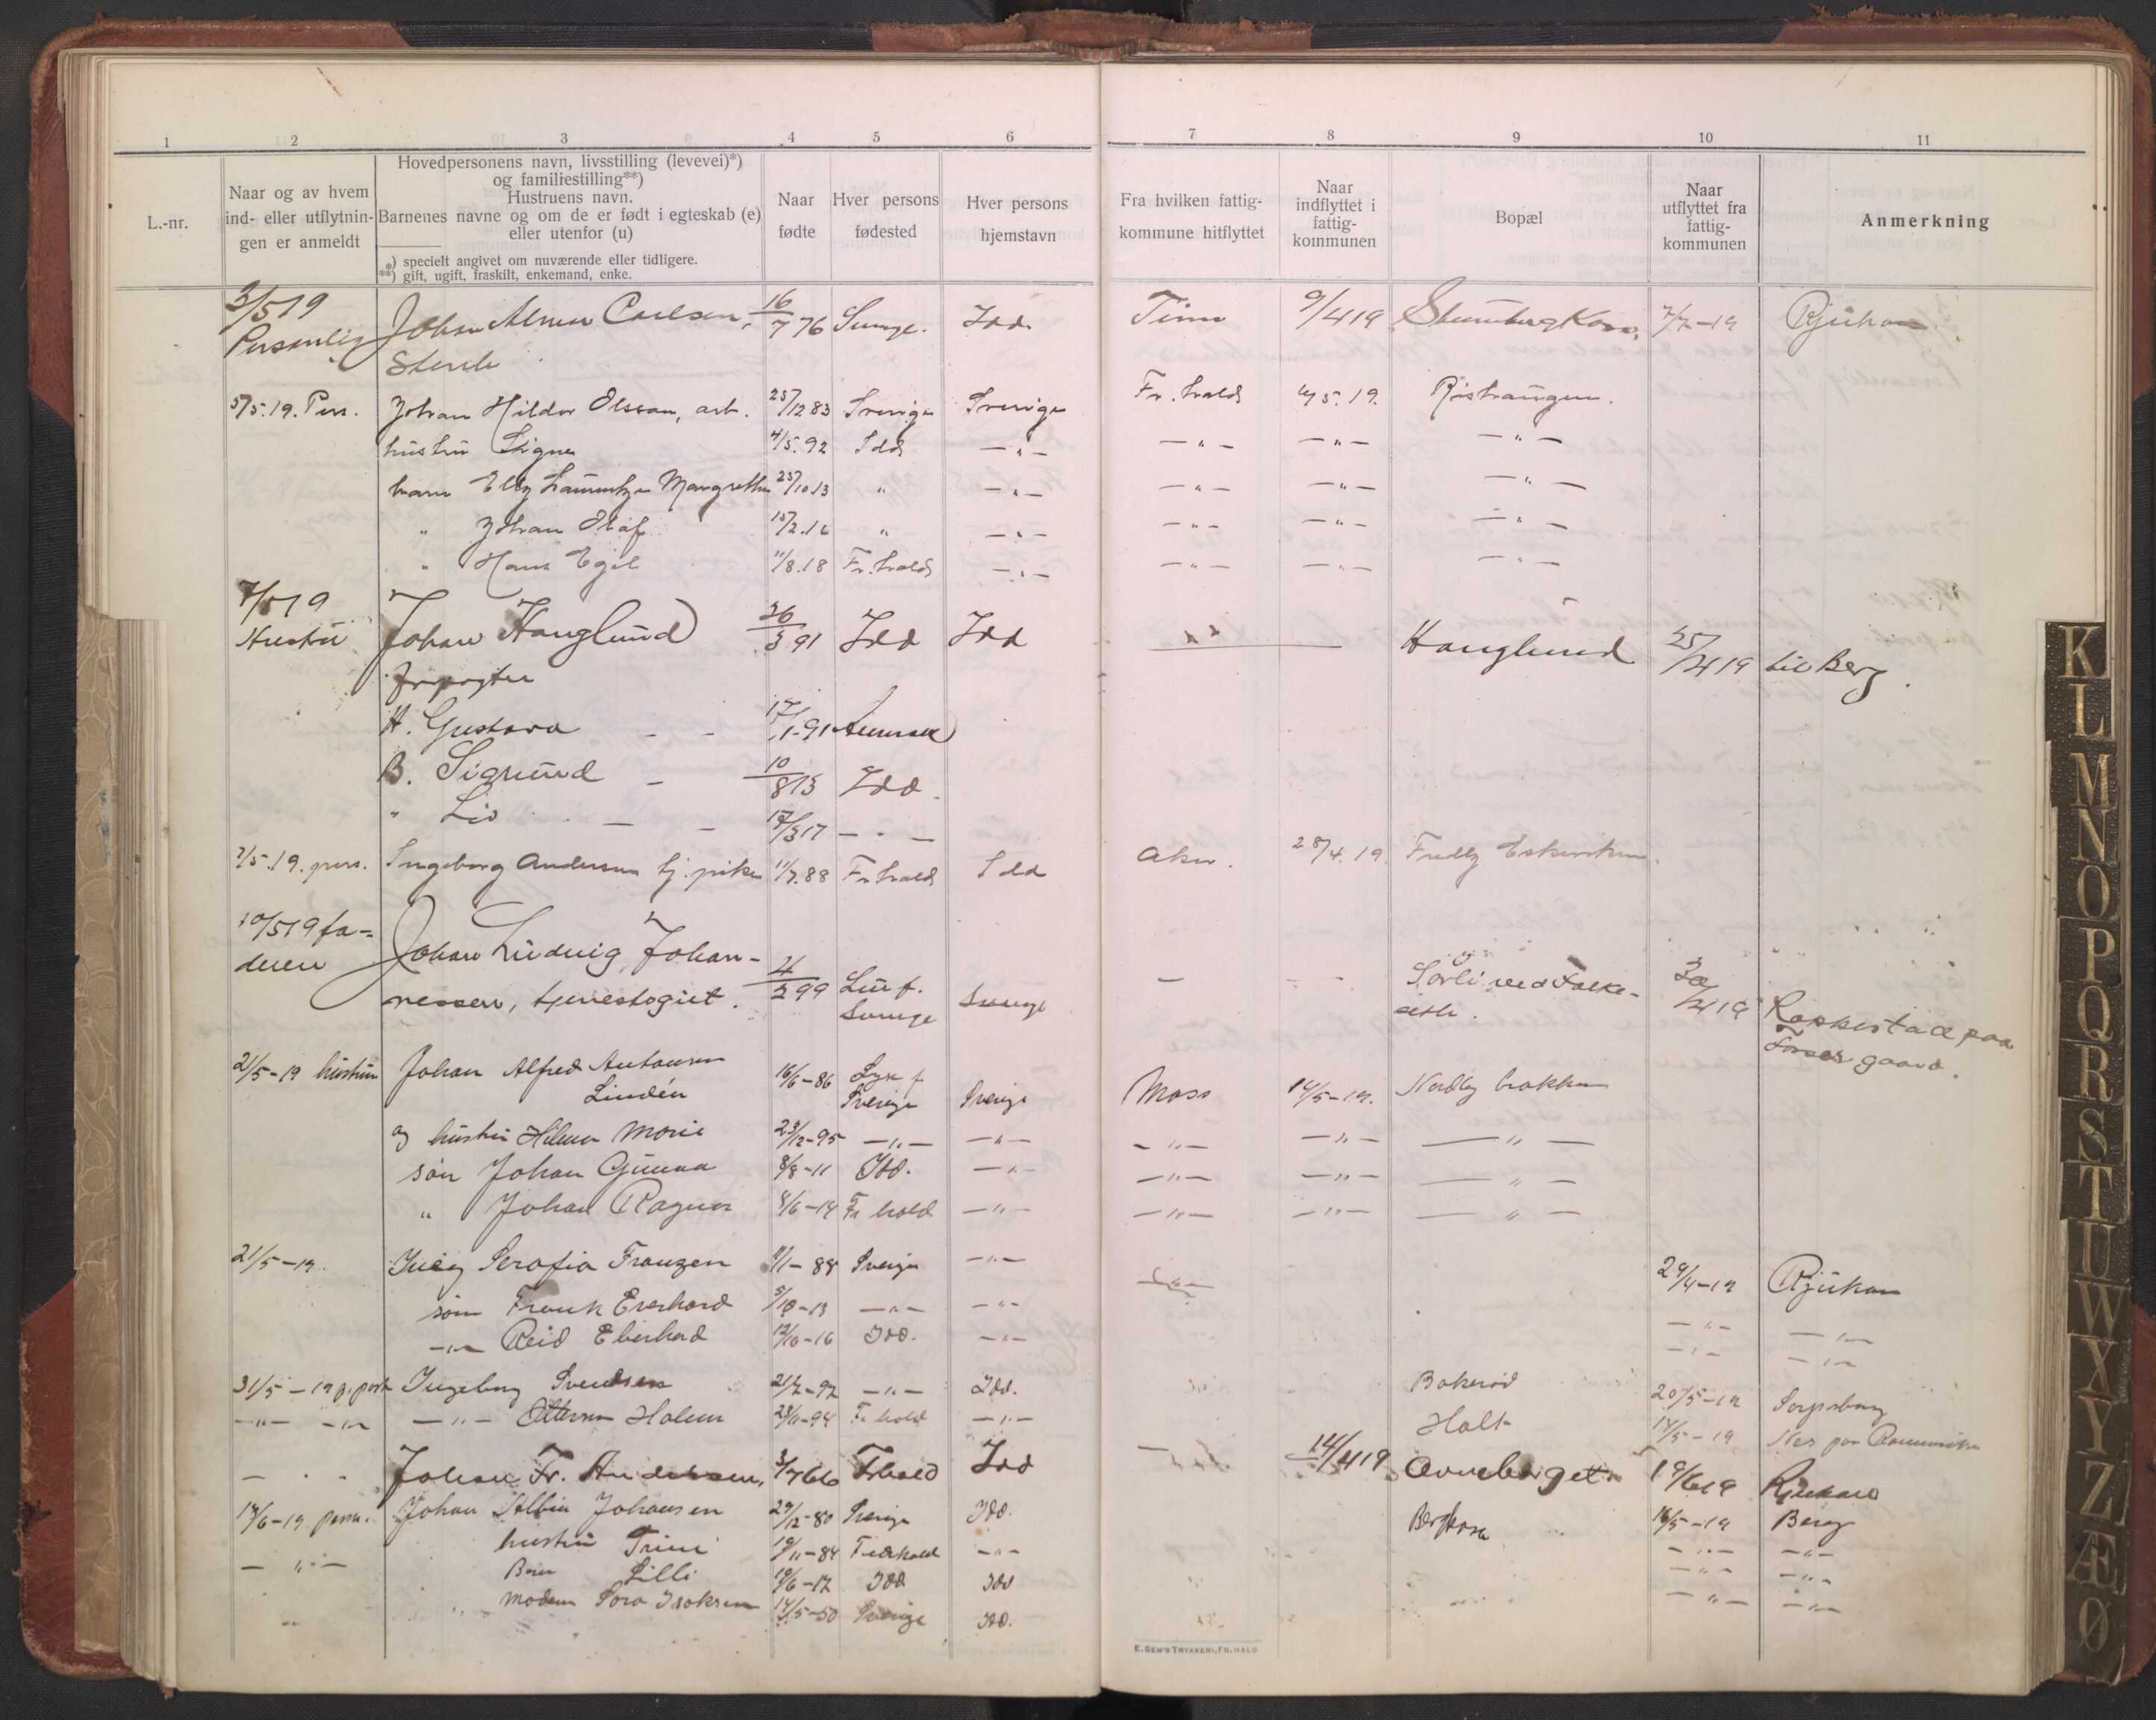 1 2 3 4 5 6 7 8 9 10 11
L.-nr.
Naar og av hvem
ind- eller utflytnin-
gen er anmeldt
Hovedpersonens navn, livsstilling (levevei)*)
og familiestilling**)
Hustruens navn.
Barnenes navne og om de er født i egteskab (e)
eller utenfor (u)
*) specielt angivet om nuværende eller tidligere.
**) gift, ugift, fraskilt, enkemand, enke.
Naar
fødte
Hver persons
fødested
Hver persons
hjemstavn
Fra hvilken fattig-
kommune hitflyttet
Naar
indflyttet i
fattig-
kommunen
Bopæl
Naar
utflyttet fra
fattig-
kommunen
Anmerkning
3/5 19 Johan Carlsen, 16/7 76 Idd. Tinn 9/4 19 7/7-19 Rjukan
Personlig
5/5.19. Pers. Johan Hildor Olsson, arb. 25/12 83 Sverige Sverige Fr.hald 4/5.19. Ristrangen.
hustru Signe 4/5.92 Idd -"- -"- -"- -"-
barn Elly Margrethe 25/10 13 " -"- -"- -"- -"-
" Johan Olaf 15/2.16 " -"- -"- -"- -"-
" Hans Egil 11/8.18 Fr.hald -"- -"- -"- -"-
7/5 19 Johan Hauglund 26/3 91 Idd Idd Hauglund 25/4 19 til Berg.
Hustru
Forpagter
H. Gustava - - 17/1-91 Aremark
B. Sigrund - 10/8 13 Idd.
" Liv - - 17/3 17 - " -
7/5.19. pers. Ingeborg Andersen tj. pike 11/7.88 Fr.hald Idd Aker. 28/4.19. Fredly
10/5 19 fa- Johan Ludvig Johan-
deren nessen, tjenestegut. 4/2 99 Lur s. Sverige Sverige - - Sørli ved Falke- 30/4 19 Rakkestad paa
gaard.
21/5-19 hustru Johan Alfred Antonsen 16/6-86 Sverige Sverige Moss 14/5-19. Nordby brakken
Lindén
og hustru Hilma Marie 23/12-95 -"- -"- -"- -"- -"-
søn Johan Gunnar 8/8-11 Idd. -"- -"- -"- -"-
" Johan Ragnar 8/6-14 Fr hald -"- -"- -"- -"-
21/5-19. Serafia Franzen 11/1-88 Sverige -"- 29/4-19 Rjukan
søn Frank Everhard 5/10-13 -"- -"- -"- -"-
-"- Reid Eberhard 12/10-16 Idd. -"- -"- -"-
31/5-19 p. post Ingeborg Svendsen 21/7-97 -"- Idd. Bakerød 20/5-19 Sarpsborg
-"- -"- -"- Holm 23/11-94 Fr hald -"- Holt 14/5-19 Nes paa Romerike
- " - Johan Fr. Andersen, 3/7 66 Frhald Idd - 14/4 19 19/6 19 Rjukan
14/6-19 pers. Johan Albin Johansen 29/12-80 Sverige Idd. 16/5-19 Berg
hustru Trine 19/11-84 Fredrhald -"- -"- -"-
- " - Barn Lilli 19/6-17 Idd Idd -"- -"-
Moderen Isaksen 14/5-50 Sverige Idd. -"- -"-
E. SEM'S TRYKKERI, FR.HALD
K
L
M
N
O
P
Q
R
S
T
U
W
X
Y
Z
Æ
Ø